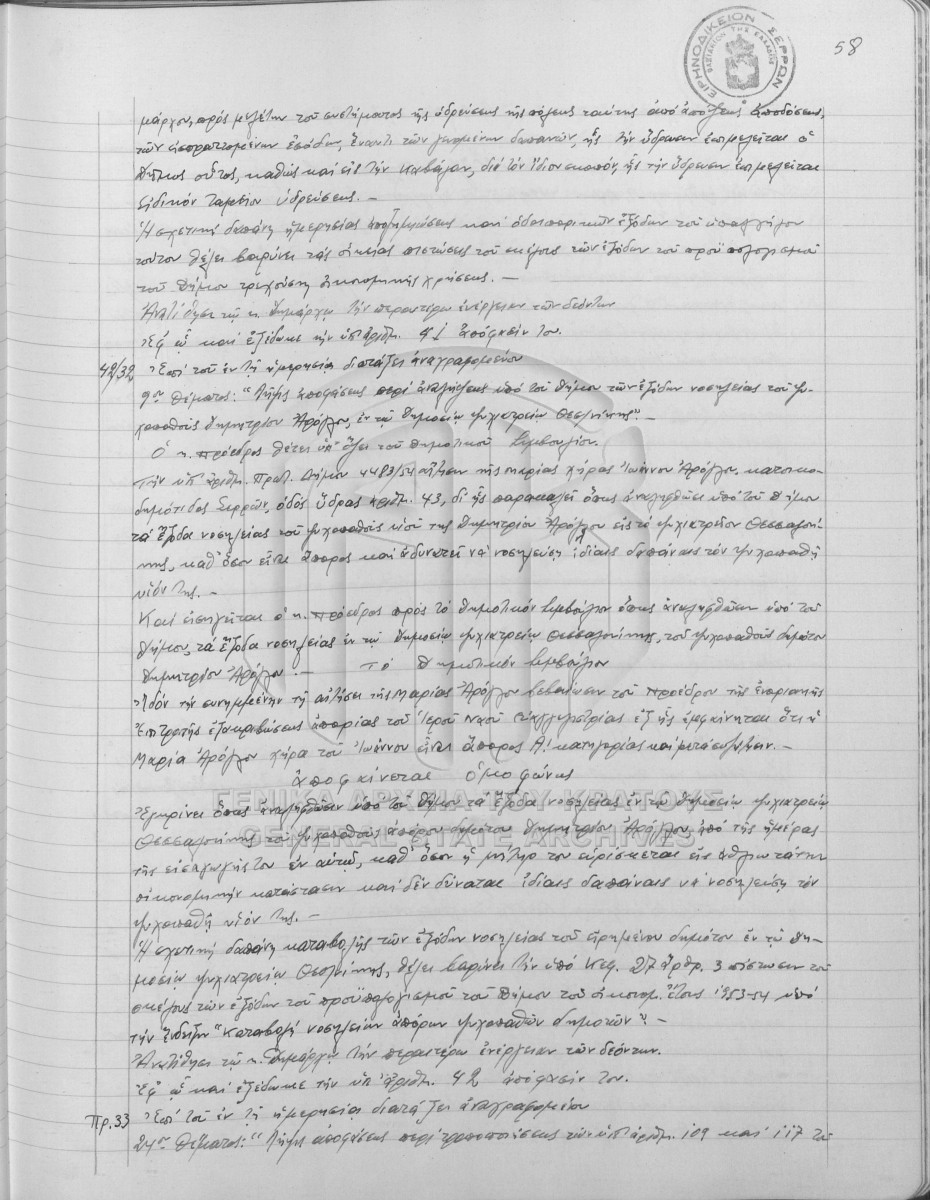 ΕΙΡΗΝΟΔΙΚΕΙΟΝ ΣΕΡΡΩΝ
ΒΑΣΙΛΕΙΟΝ ΤΗΣ ΕΛΛΑΔΟΣ
58
μάρχου, πρός μελέτην τοῦ συστήματος τῆς ὑδρεύσεως τῆς πόλεως ταύτης ἀπό ἀπόψεως ἀποδόσεως
τῶν εἰσπραττομένων ἐσόδων, ἔναντι τῶν γενομένων δαπανῶν, ἧς τήν ὕδρευσιν ἐπιμελεῖται ὁ
Δῆμος οὗτος, καθώς καί εἰς τήν Καβάλαν, διά τόν ἴδιον σκοπόν, ἧς τήν ὕδρευσιν ἐπιμελεῖται
Εἰδικόν Ταμεῖον ὑδρεύσεως. —
Ἡ σχετική δαπάνη ἡμερησίας ἀποζημιώσεως καί ὁδοιπορικῶν ἐξόδων τοῦ ὑπαλλήλου
τούτου θέλει βαρύνει τάς οἰκείας πιστώσεις τοῦ σκέλους τῶν ἐξόδων τοῦ προϋπολογισμοῦ
τοῦ Δήμου τρεχούσης οἰκονομικῆς χρήσεως. —
Ἀνατίθησι τῷ κ. Δημάρχῳ τήν περαιτέρω ἐνέργειαν τῶν δεόντων
Ἐφ' ᾧ καί ἐξέδωκε τήν ὑπ' ἀριθμ. 41 ἀπόφασίν του.
42/32 Ἐπί τοῦ ἐν τῇ ἡμερησίᾳ διατάξει ἀναγραφομένου
9ου θέματος: "Λῆψις ἀποφάσεως περί ἀναλήψεως ὑπό τοῦ Δήμου τῶν ἐξόδων νοσηλείας τοῦ ψυ-
χοπαθοῦς Δημητρίου Ἀράγλου, ἐν τῷ Δημοσίῳ ψυχιατρείῳ Θεσ/νίκης". —
Ὁ κ. Πρόεδρος θέτει ὑπ' ὄψει τοῦ Δημοτικοῦ Συμβουλίου.
Τήν ὑπ' ἀριθμ. Πρωτ. Δήμου 4483/54 αἴτησιν τῆς Μαρίας χήρας Ἰωάννου Ἀράγλου, κατοίκου
δημότιδος Σερρῶν, ὁδός Ὕδρας ἀριθμ. 43, δι' ἧς παρακαλεῖ ὅπως ἀναληφθῶσι ὑπό τοῦ Δήμου
τά ἔξοδα νοσηλείας τοῦ ψυχοπαθοῦς υἱοῦ της Δημητρίου Ἀράγλου εἰς τό ψυχιατρεῖον Θεσσαλονί-
κης, καθ' ὅσον εἶναι ἄπορος καί ἀδυνατεῖ νά νοσηλεύσῃ ἰδίαις δαπάναις τόν ψυχοπαθῆ
υἱόν της. —
Καί εἰσηγεῖται ὁ κ. Πρόεδρος πρός τό Δημοτικόν Συμβούλιον ὅπως ἀναληφθῶσιν ὑπό τοῦ
Δήμου, τά ἔξοδα νοσηλείας ἐν τῷ Δημοσίῳ ψυχιατρείῳ Θεσσαλονίκης, τοῦ ψυχοπαθοῦς δημότου
Δημητρίου Ἀράγλου. — Τό Δημοτικόν Συμβούλιον
Ἰδόν τήν συνημμένην τῇ αἰτήσει τῆς Μαρίας Ἀράγλου βεβαίωσιν τοῦ Προέδρου τῆς ἐνοριακῆς
Ἐπιτροπῆς ἐξακριβώσεως ἀπορίας τοῦ Ἱεροῦ Ναοῦ Εὐαγγελιστρίας ἐξ ἧς ἐμφαίνεται ὅτι ἡ
Μαρία Ἀράγλου χήρα τοῦ Ἰωάννου εἶναι ἄπορος Α! κατηγορίας καί μετά συζήτησιν. —
ἀποφαίνεται ὁμοφώνως
Ἐγκρίνει ὅπως ἀναληφθῶσιν ὑπό τοῦ Δήμου τά ἔξοδα νοσηλείας ἐν τῷ Δημοσίῳ ψυχιατρείῳ
ΓΕΝΙΚΑ ΑΡΧΕΙΑ ΤΟΥ ΚΡΑΤΟΥΣ
GENERAL STATE ARCHIVES
Θεσσαλονίκης τοῦ ψυχοπαθοῦς ἀπόρου δημότου Δημητρίου Ἀράγλου, ἀπό τῆς ἡμέρας
τῆς εἰσαγωγῆς του ἐν αὐτῷ, καθ' ὅσον ἡ μήτηρ του εὑρίσκεται εἰς ἀθλιωτάτην
οἰκονομικήν κατάστασιν καί δέν δύναται ἰδίαις δαπάναις νά νοσηλεύσῃ τόν
ψυχοπαθῆ υἱόν της. —
Ἡ σχετική δαπάνη καταβολῆς τῶν ἐξόδων νοσηλείας τοῦ εἰρημένου δημότου ἐν τῷ Δη-
μοσίῳ ψυχιατρείῳ Θεσ/νίκης, θέλει βαρύνει τήν ὑπό Κεφ. 27 ἄρθρ. 3 πίστωσιν τοῦ
σκέλους τῶν ἐξόδων τοῦ προϋπολογισμοῦ τοῦ Δήμου τοῦ οἰκονομ. ἔτους 1953-54 ὑπό
τήν ἔνδειξιν "Καταβολή νοσηλείων ἀπόρων ψυχοπαθῶν δημοτῶν". —
Ἀνατίθησι τῷ κ. Δημάρχῳ τήν περαιτέρω ἐνέργειαν τῶν δεόντων.
Ἐφ' ᾧ καί ἐξέδωκε τήν ὑπ' ἀριθμ. 42 ἀπόφασίν του.
Πρ. 33 Ἐπί τοῦ ἐν τῇ ἡμερησίᾳ διατάξει ἀναγραφομένου
24ου θέματος: "Λῆψις ἀποφάσεως περί τροποποιήσεως τῶν ὑπ' ἀριθμ. 109 καί 117 τῶν